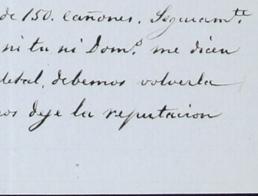 de 150. cañones. Seguramte
ni tu ni Domo. me dicen
debemos volverla
nos deje la reputacion